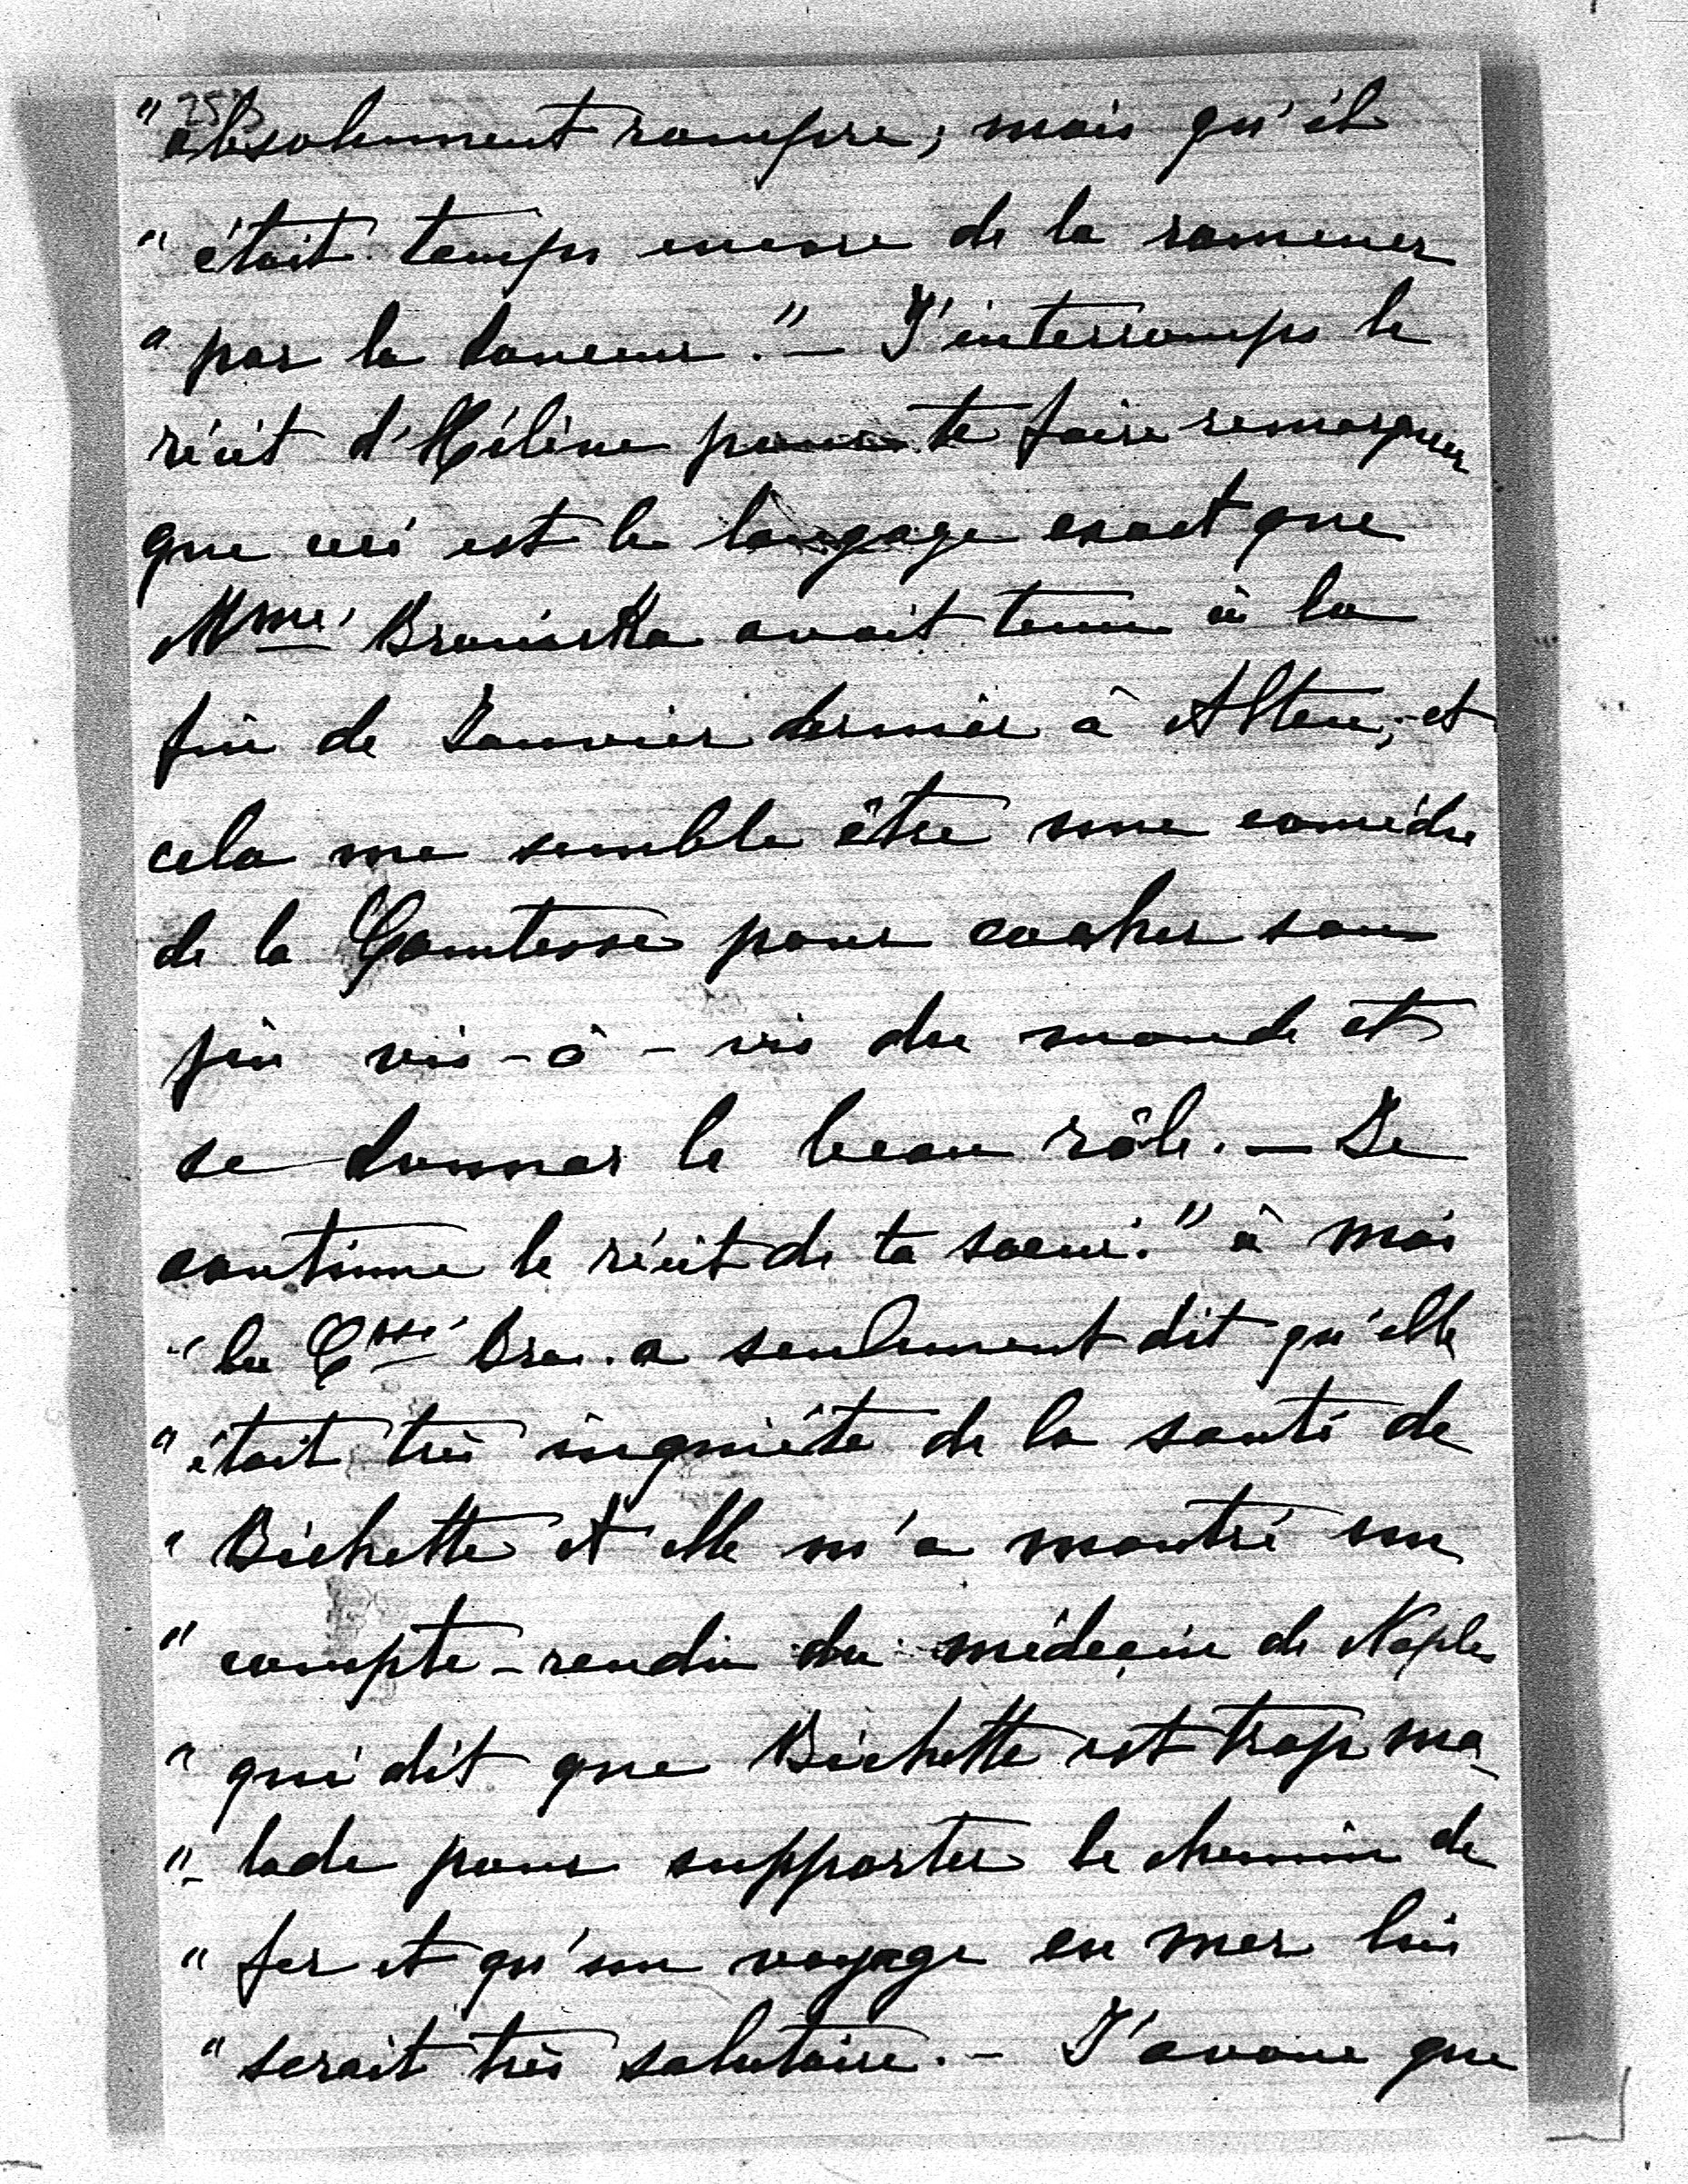 253
" absolument rompre; mais qu'il
" était temps encore de la ramener
" par la douceur." — J'interromps le
récit d'Hélène pour te faire remarquer
que ceci est le langage exact que
Mme Bronicka avait tenu à la
fin de Janvier dernier à Alten; et
cela me semble être une comédie
de la Comtesse pour cacher son
jeu vis-à-vis du monde et
se donner le beau rôle. — Je
continue le récit de ta soeur. " à moi
" la Csse Bro. a seulement dit qu'elle
" était très inquiète de la santé de
" Bichette et elle m'a montré un
" compte-rendu du médecin de Naples
" qui dit que Bichette est trop ma-
"- lade pour supporter le chemin de
" fer et qu'un voyage en mer lui
" serait très salutaire. — J'avoue que